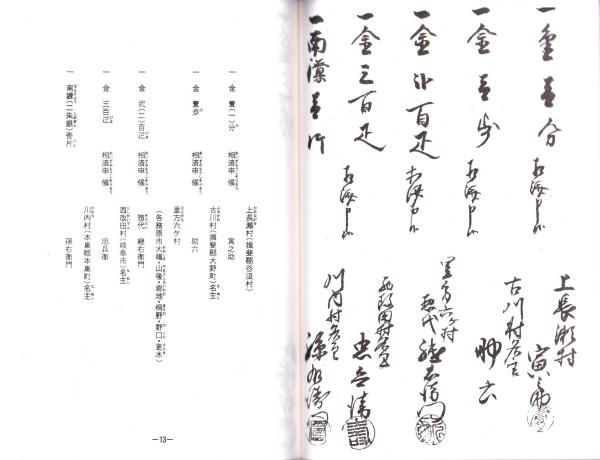 一金壱分 相済申候
上長瀬村
寅之助
一金壱歩 相済申候
古川村名主
助六
一金弐百疋 相済申候
里方六ケ村
惣代 継右衛門
一金三百疋 相済申候
西改田村名主
忠兵衛
一南鐐壱片
川内村名主
孫右衛門
一 金 壹(一)分 相済申候
上長瀬村(揖斐郡谷汲村)
寅之助
一 金 壹歩 相済申候
古川村(揖斐郡大野町)名主
助六
一 金 弐(二)百疋 相済申候
里方六ケ村
(各務原市大嶋・山後・岩地・桐野・野口・更木)
惣代 継右衛門
一 金 三百疋 相済申候
西改田村(岐阜市)名主
忠兵衛
一 南鐐(二朱銀)壱片
川内村(本巣郡本巣町)名主
孫右衛門
―13―